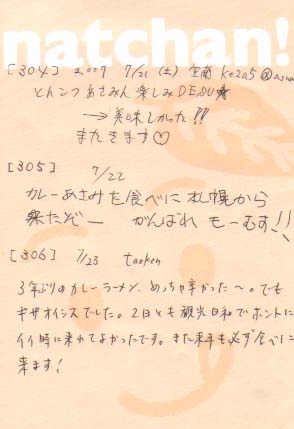 natchan!
[304] 2009 7/21 (土) 室蘭 kezo5@
とんこつあさみん楽しみDESU★
→美味しかった!!
またきます♡
[305] 7/22
カレーあさみを食べに札幌から
来たぞー がんばれ もーむす!!
[306] 7/23 taoken
3年ぶりのカレーラーメン めっちゃ辛かった〜。でも
ギザオイシスでした。2日とも観光日和でホントに
イイ時に来れてよかったです。また来年も必ず食べに
来ます!